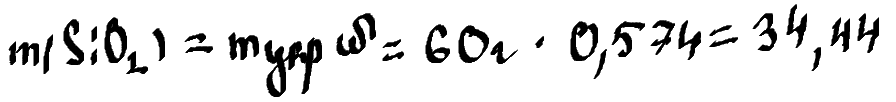 m(SiO₂) = mукр ω = 60г · 0,574 = 34,44